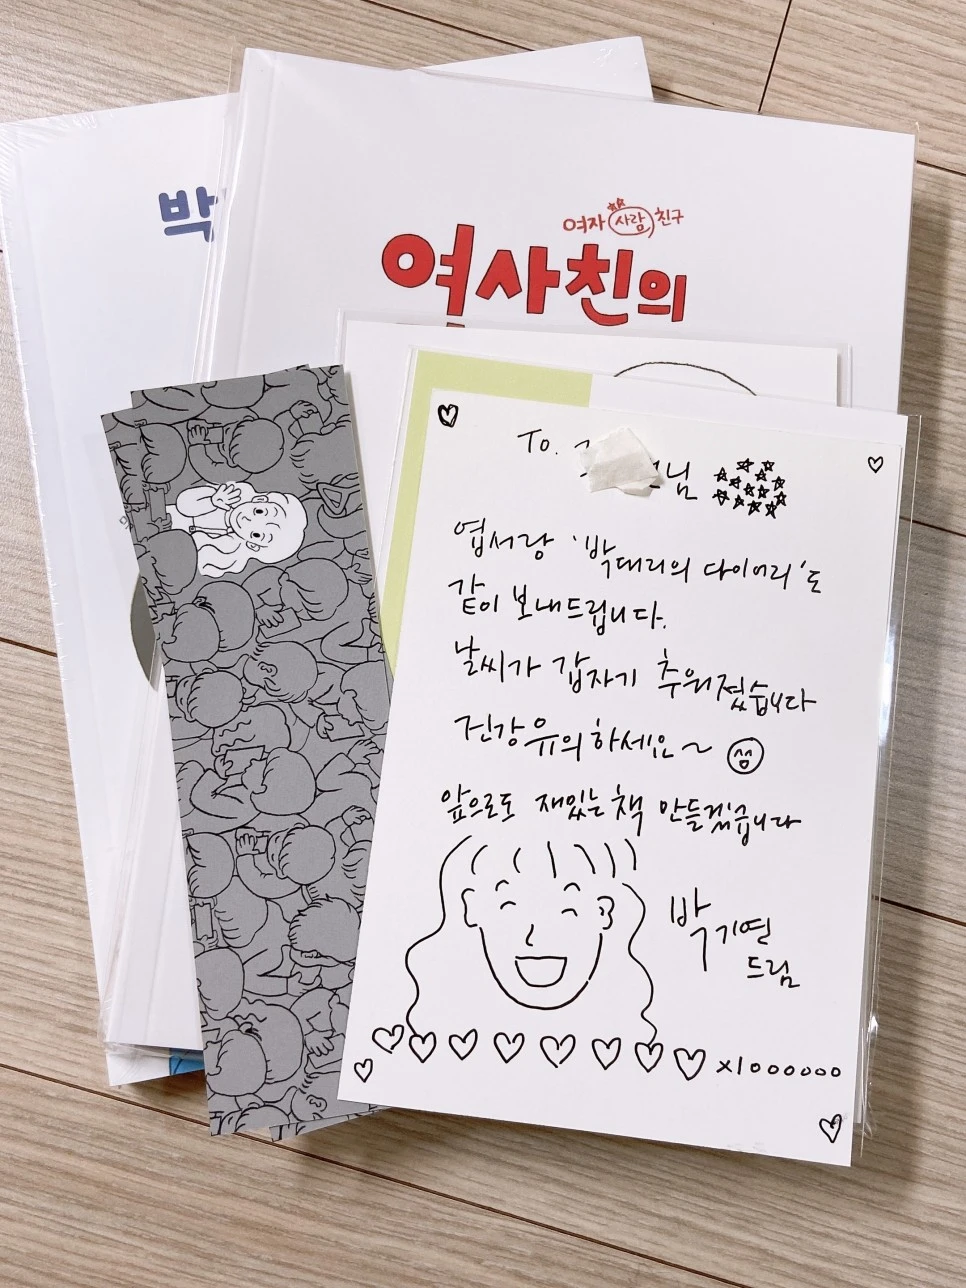 박
여자 사람 친구
여사친의
To. 님
엽서랑 '박대리의 다이어리'도
같이 보내드립니다.
날씨가 갑자기 추워졌습니다
건강유의하세요~
앞으로도 재밌는 책 만들겠습니다
박기연
드림
x1000000